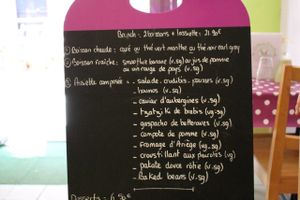 Brunch : 2 boissons + l'assiette : 21.90€
① Boisson chaude : café ou thé vert menthe ou thé noir earl grey
② Boisson fraîche : smoothie banane (v.sg) ou jus de pomme
ou vin rouge de pays (v.sg)
③ Assiette composée : - salade, crudités, graines (v.sg)
- houmos (v.sg)
- caviar d'aubergines (v.sg)
- tzatziki de brebis (vg.sg)
- gaspacho de betteraves (v.sg)
- compote de pomme (v.sg)
- fromage d'Ariège (vg.sg)
- croustillant aux (vg)
- patate douce rôtie (v.sg)
- Baked beans (v.sg)
Desserts : 6.90€